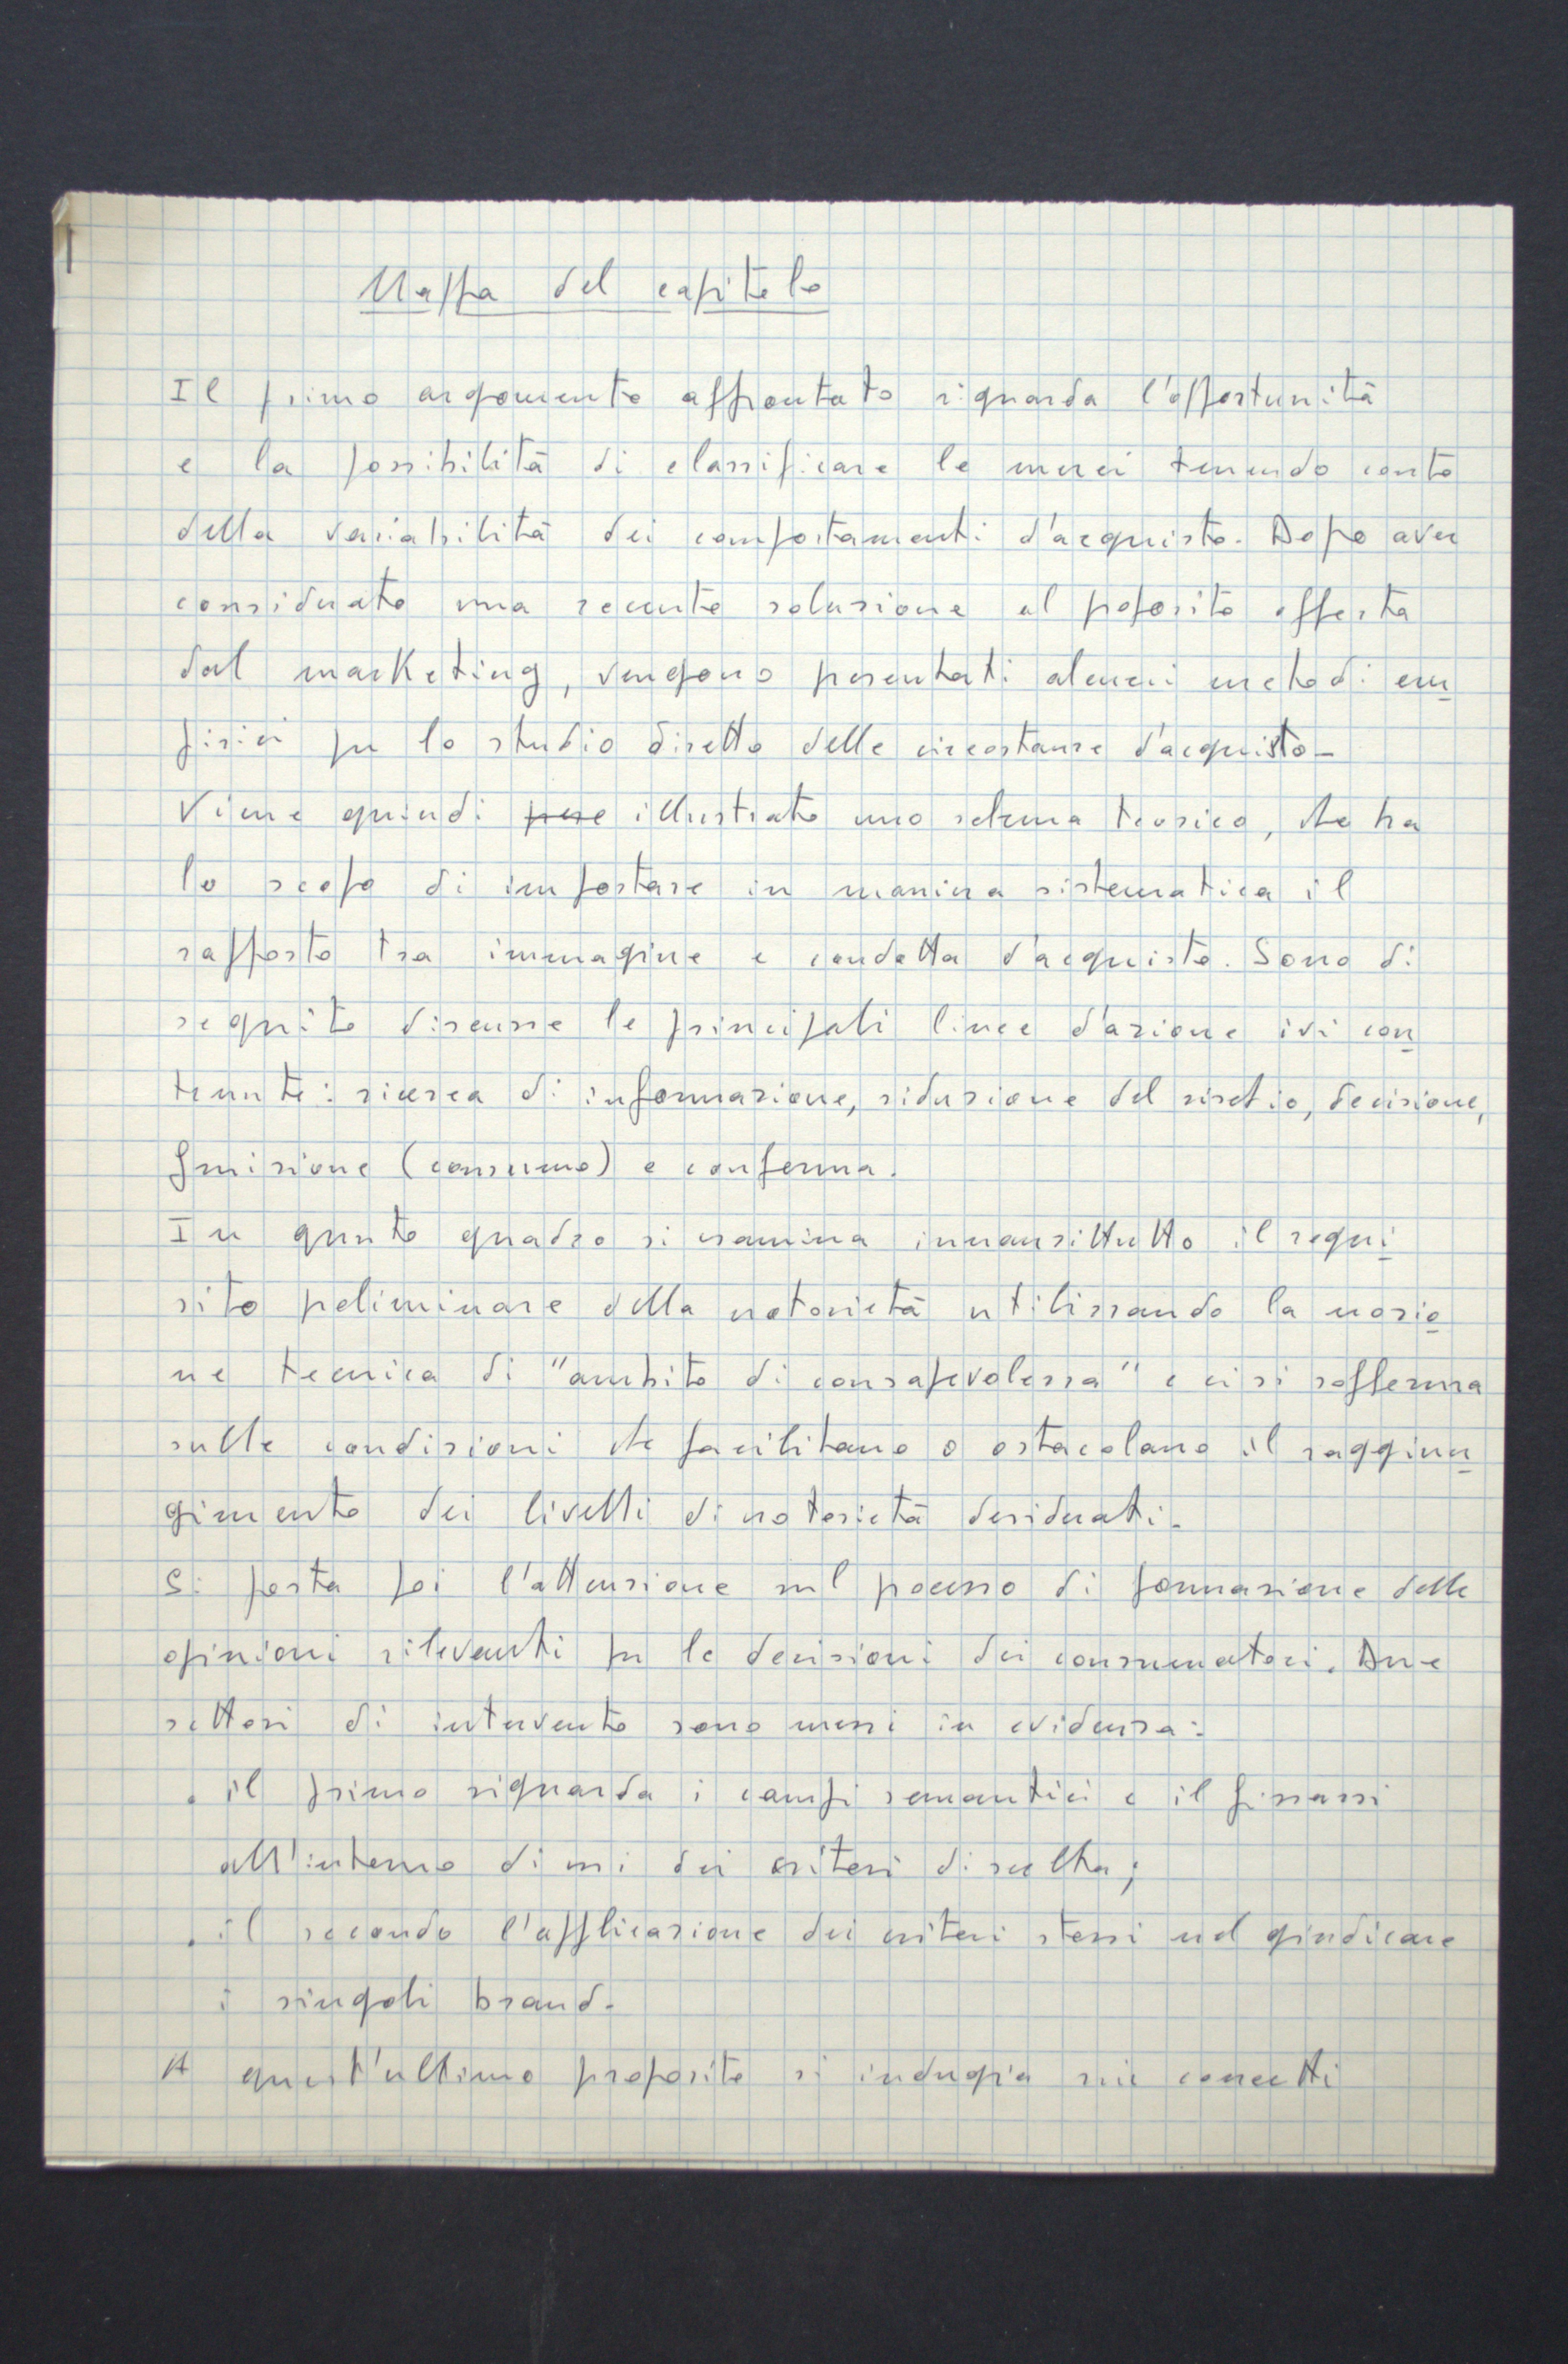 Mappa del capitolo
Il primo argomento affrontato riguarda l'opportunità
e la possibilità di classificare le merci tenendo conto
della variabilità dei comportamenti d'acquisto. Dopo aver
considerato una recente soluzione al proposito offerta
dal marketing, vengono presentati alcuni metodi em
pirici per lo studio diretto delle circostanze d'acquisto.
Viene quindi pere illustrato uno schema teorico, che ha
lo scopo di impostare in maniera sistematica il
rapporto tra immagine e condotta d'acquisto. Sono di
seguito discusse le principali linee d'azione ivi con
tenute: ricerca di informazione, riduzione del rischio, decisione,
fruizione (consumo) e conferma.
In questo quadro si esamina innanzittutto il requi
sito preliminare della notorietà utilizzando la nozio
ne tecnica di "ambito di consapevolezza" e ci si sofferma
sulle condizioni che facilitano o ostacolano il raggiun
gimento dei livelli di notorietà desiderati.
Si porta poi l'attenzione sul processo di formazione delle
opinioni rilevanti per le decisioni dei consumatori. Due
settori di intervento sono messi in evidenza:
. il primo riguarda i campi semantici e il fissarsi
all'interno di essi dei criteri di scelta;
. il secondo l'applicazione dei criteri stessi nel giudicare
i singoli brand.
A quest'ultimo proposito si indugia sui concetti